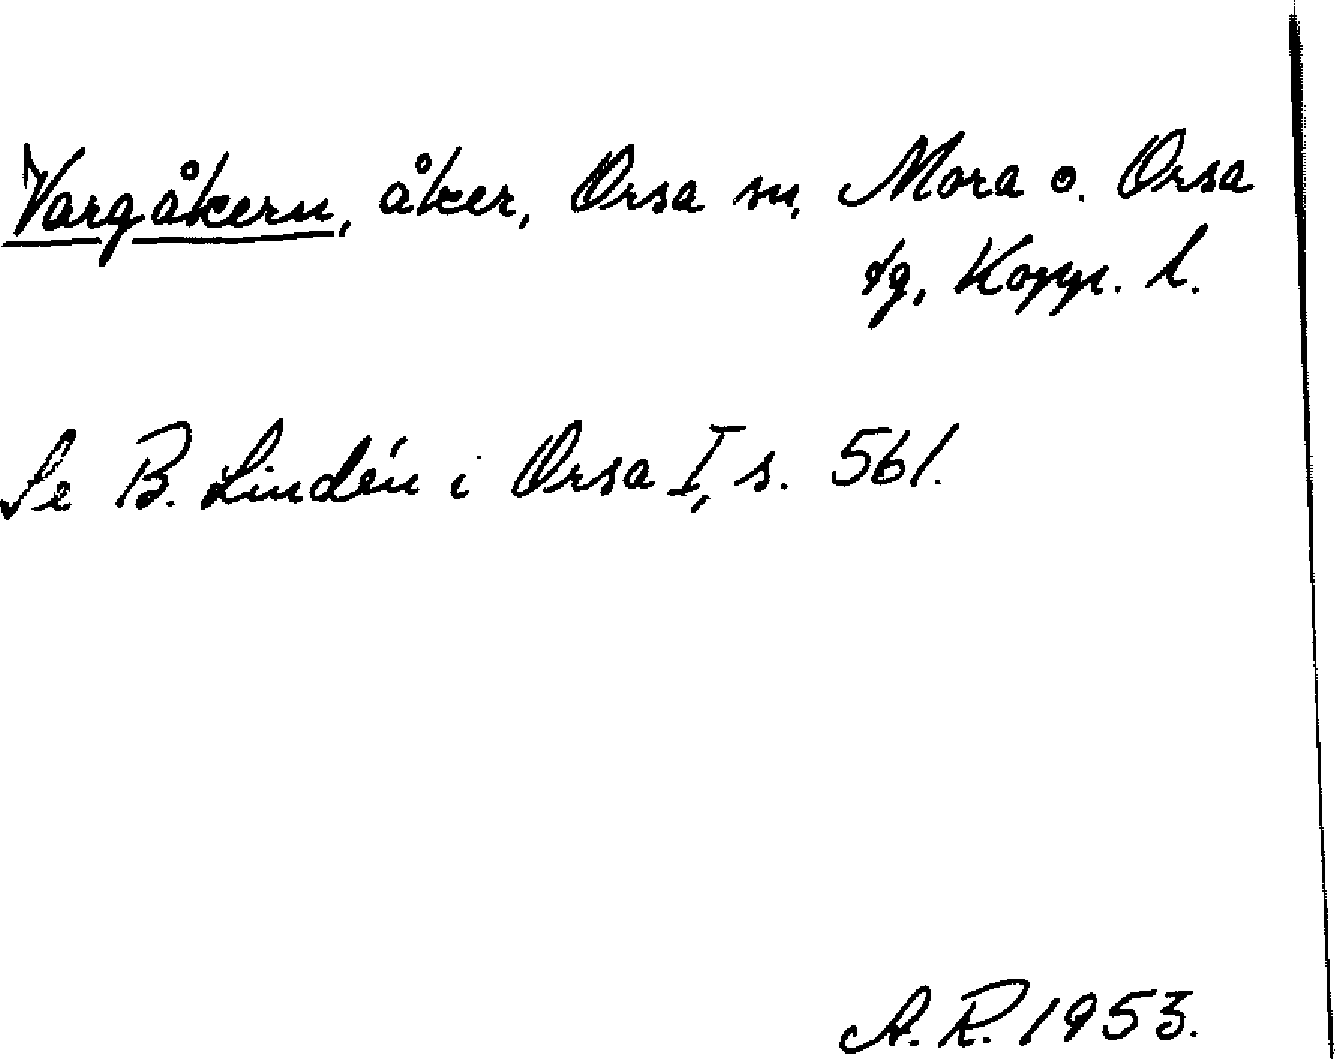 Vargåkern, åker, Orsa sn, Mora o. Orsa
tg, Kopp. l.
Se B. Lindén i Orsa I, s. 561.
A. R. 1953.